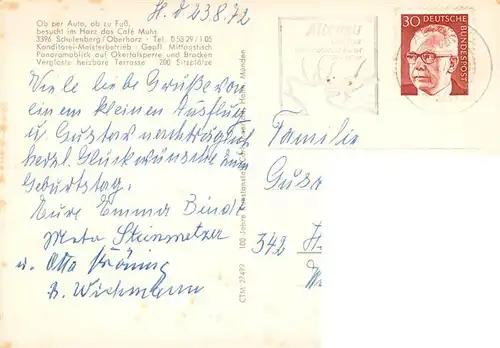 H. D 23.8.72
Ob per Auto, ob zu Fuß,
besucht im Harz das Café Muhs
3396 Schulenberg/Oberharz - Tel. 0 53 29 / 1 05
Konditorei-Meisterbetrieb - Gepfl. Mittagstisch
Panoramablick auf Okertalsperre und Brocken
Verglaste heizbare Terrasse 200 Sitzplätze
Viele liebe Grüße von
ein em kleinen Ausflug
u. Gustav nachträglich
herzl. Glückwünsche zum
Geburtstag.
Eure Emma Bindl
Meta Steinmetzer
u. Otto Kröning
B. Wichmann
CTM 27499 100 Jahre Hann. Münden
30 DEUTSCHE BUNDESPOST
Familie
Gus
342 H